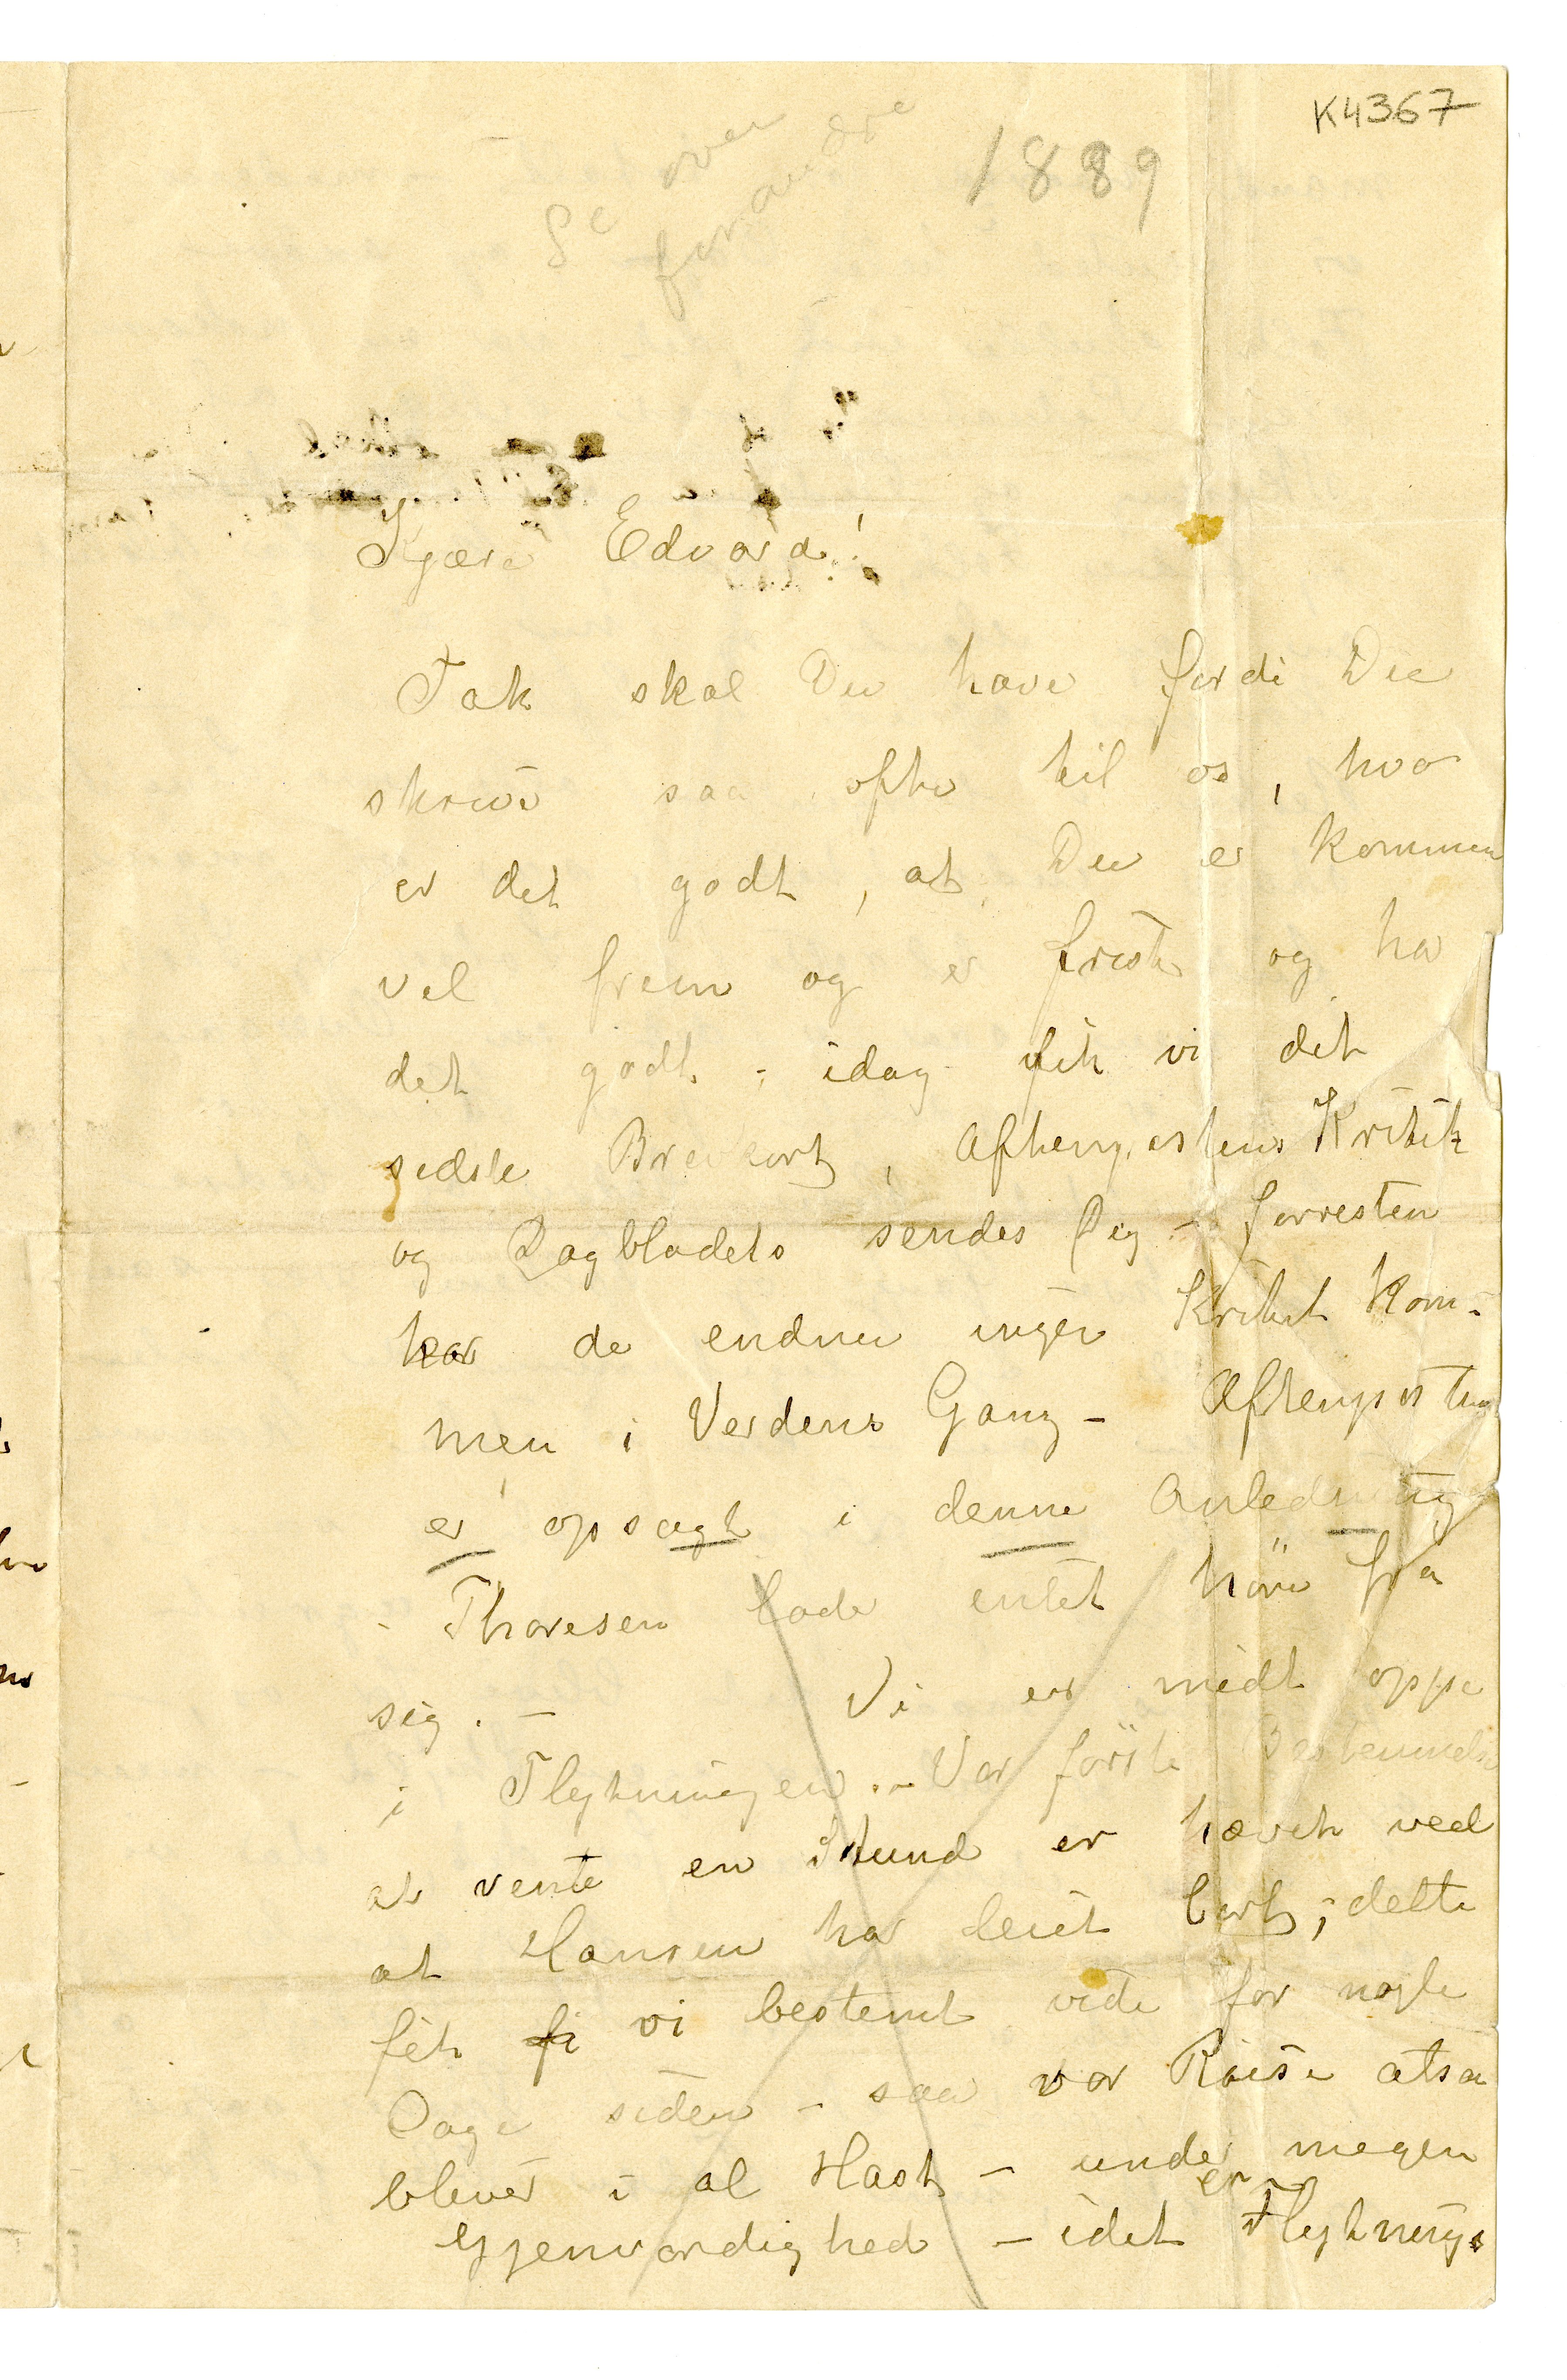 K4367
1889
Se over
forandre
Kjære Edvard!
Tak skal Du have fordi Du
skrive saa ofte til os, hvor
er det godt, at Du er kommen
vel frem og er frisk og har
det godt; idag fik vi det
sidste Brevkort, Aftenpostens Kritik
og Dagbladets sendes Dig – forresten
har de endnu ingen Kritik kom-
men i Verdens Gang – Aftenposten
er opsagt i denne Anledning
– Thoresen lade intet höre fra
sig. – Vi er midt oppe
i Flytningen. – Vor förste Bestemmelse
at vente en Stund er hævet ved
at Hansen har leiet bort; dette
fik fi vi bestemt vide for nogle
Dage siden – saa vor Reise altsa
bliver i al Hast – under megen
Gjenvordighed – idet er Flytnings